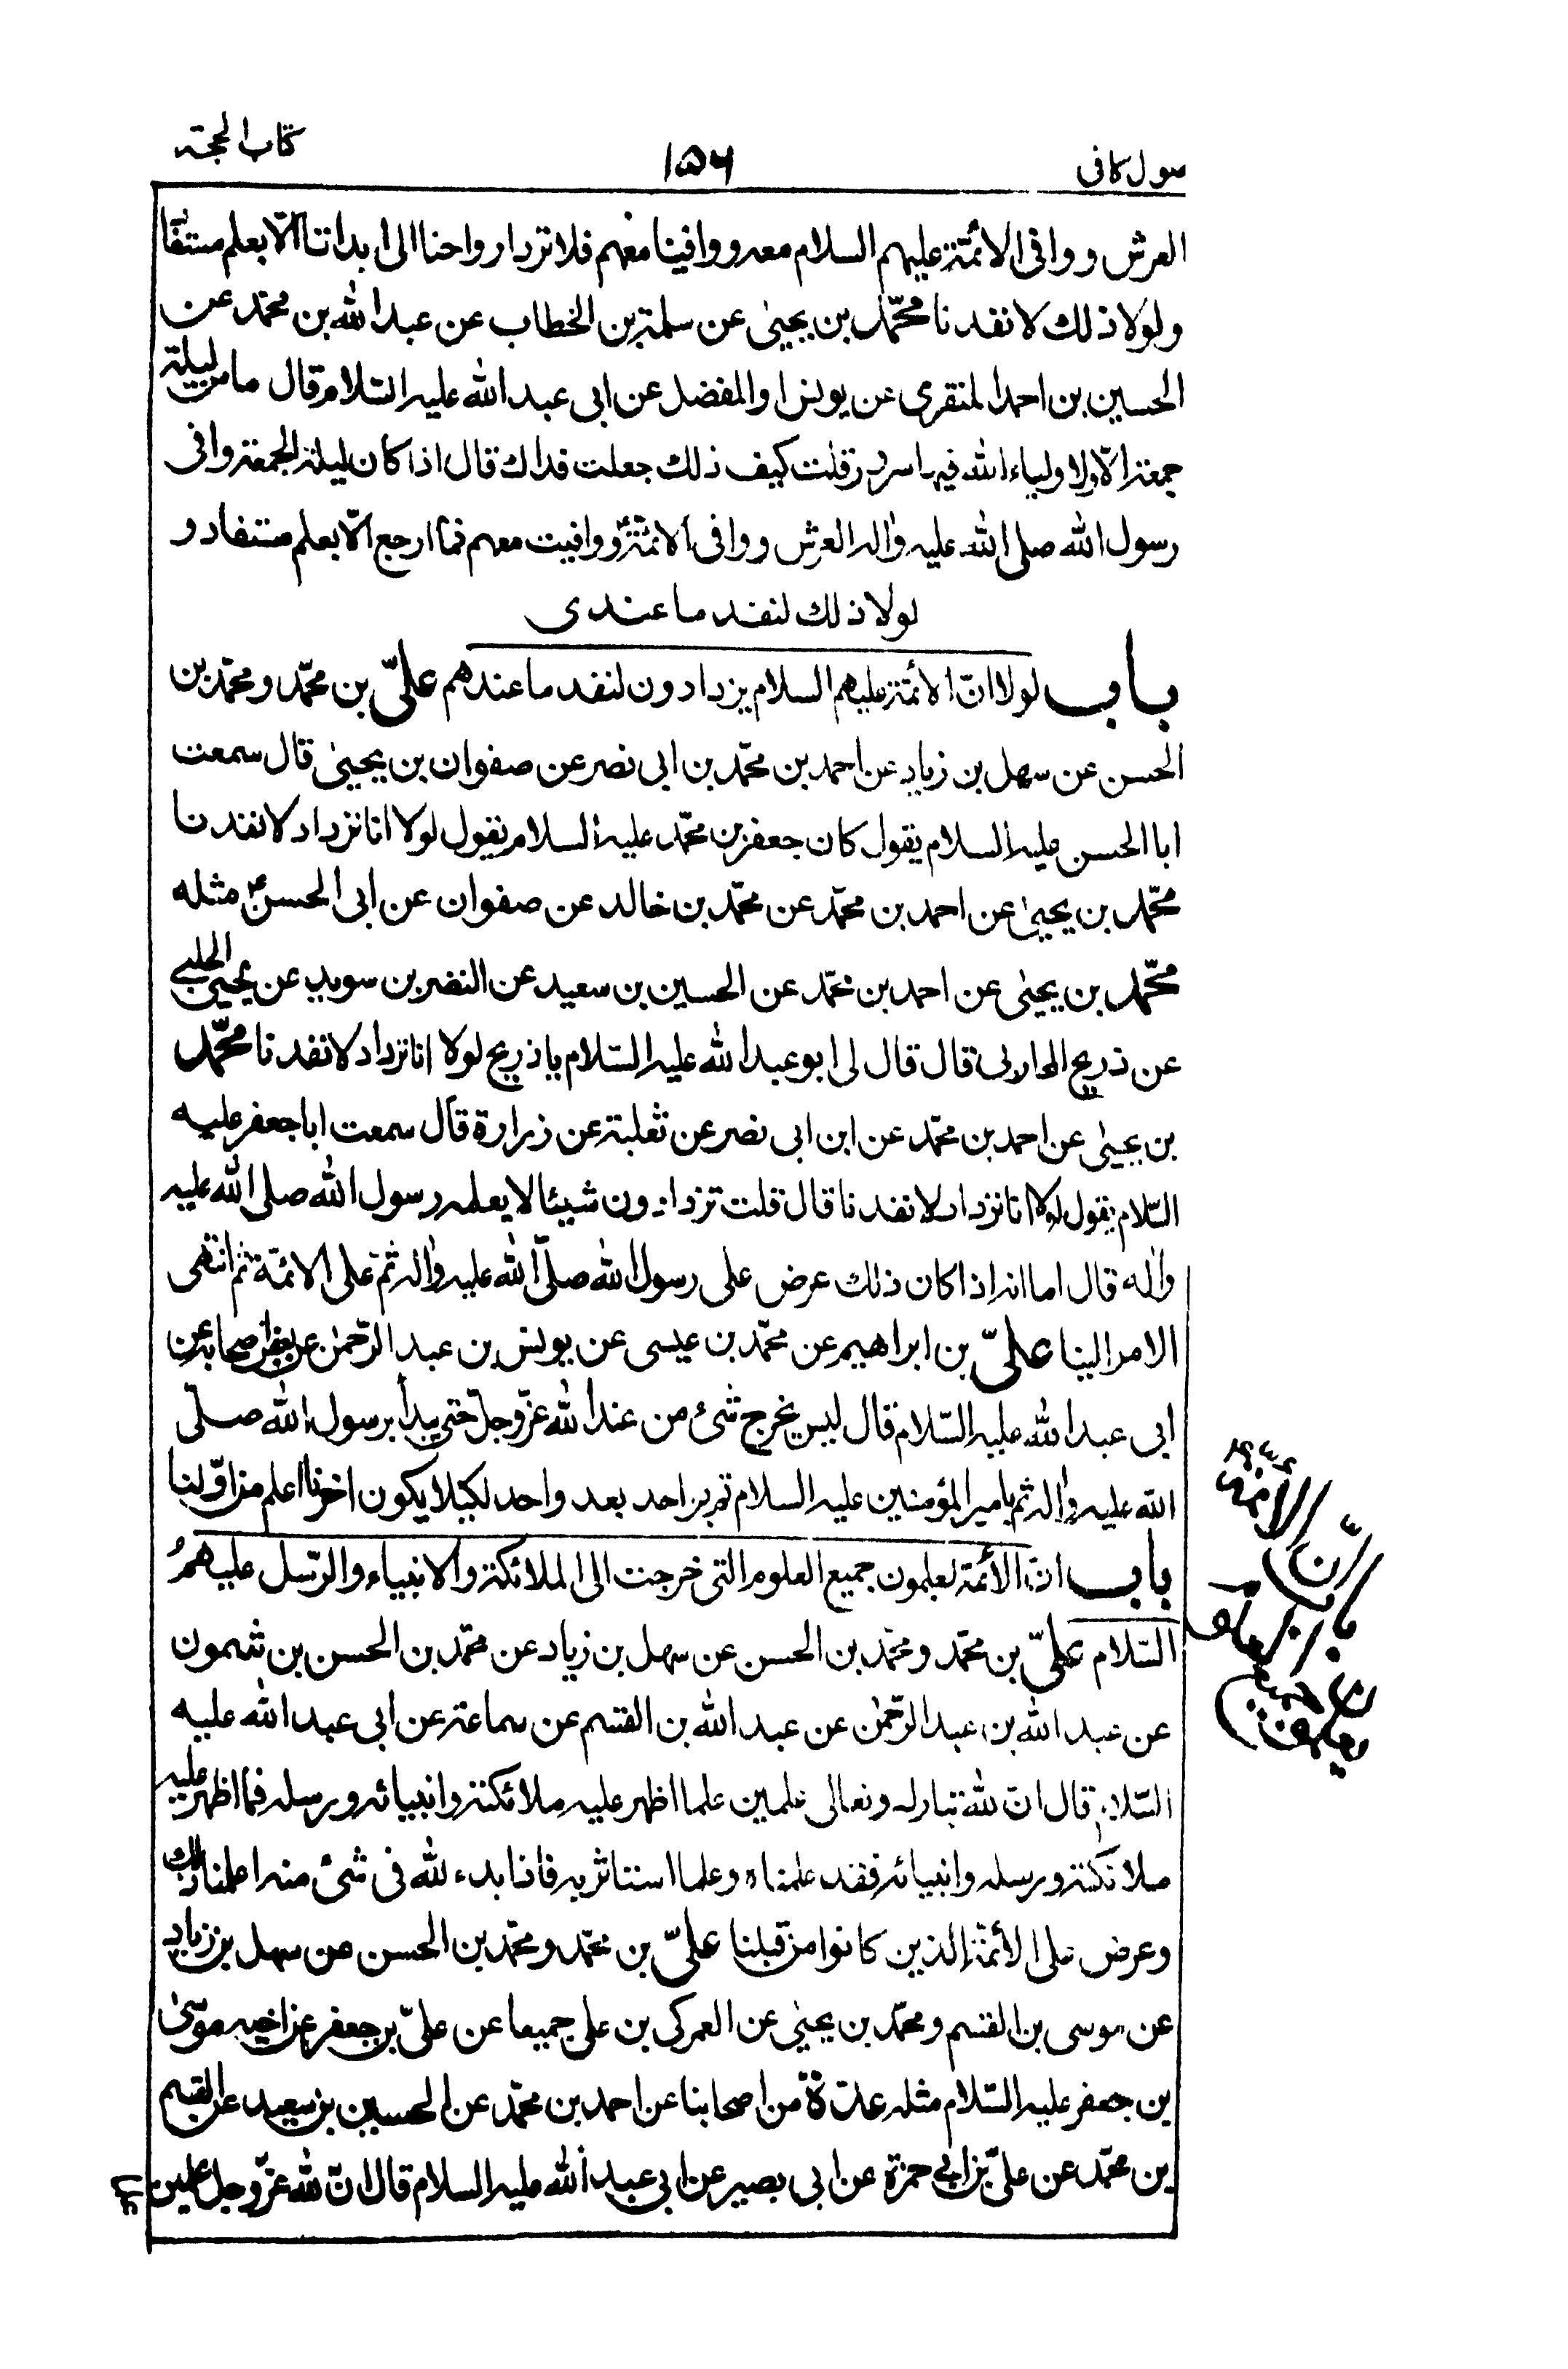 صول كافى ۱۵۶ كتاب الحجة
العرش ووافى الائمّة عليهم السلام معه ووافينا معهم فلا ترد ارواحنا الى ابداننا الّا بعلم مستفاد
ولولا ذلك لانفدنا محمّد بن يحيىٰ عن سلمة بن الخطاب عن عبد الله بن محمّد عن
الحسين بن احمد المنقرى عن يونس او المفضل عن ابى عبد الله عليه السّلام قال ما من ليلة
جمعة الّا ولاولياء الله فيها سرور قلت كيف ذلك جعلت فداك قال اذا كان ليلة الجمعة وافى
رسول الله صلى الله عليه واٰله العرش ووافى الائمّة ووافيت معهم فما ارجع الّا بعلم مستفاد و
لولا ذلك لنفد ما عندى
باب لولا انّ الأئمّة عليهم السلام يزدادون لنفد ما عندهم علىّ بن محمّد ومحمّد بن
الحسن عن سهل بن زياد عن احمد بن محمّد بن ابى نصر عن صفوان بن يحيىٰ قال سمعت
ابا الحسن عليه السلام يقول كان جعفر بن محمّد عليه السلام يقول لولا انا نزداد لانفدنا
محمّد بن يحيىٰ عن احمد بن محمّد عن محمّد بن خالد عن صفوان عن ابى الحسن ع مثله
محمّد بن يحيىٰ عن احمد بن محمّد عن الحسين بن سعيد عن النضر بن سويد عن يحيى الحلبى
عن ذريح المحاربى قال قال لى ابو عبد الله عليه السّلام يا ذريح لولا انا نزداد لانفدنا محمّد
بن يحيىٰ عن احمد بن محمّد عن ابن ابى نصر عن ثعلبة عن زرارة قال سمعت ابا جعفر عليه
السّلام يقول لولا انا نزداد لانفدنا قال قلت تزدادون شيئا لا يعلمه رسول الله صلى الله عليه
واٰله قال اما انه اذا كان ذلك عرض على رسول الله صلّى الله عليه واٰله ثم على الائمّة ثم انتهى
الامر الينا علىّ بن ابراهيم عن محمّد بن عيسى عن يونس بن عبد الرّحمٰن عن بعض اصحابه عن
ابى عبد الله عليه السّلام قال ليس يخرج شئ من عند الله عزّ وجلّ حتى يبدأ برسول الله صلّى
الله عليه واٰله ثم بامير المؤمنين عليه السلام ثم بواحد بعد واحد لكيلا يكون اخرنا اعلم من اوّلنا
باب انّ الأئمّة يعلمون جميع العلوم التى خرجت الى الملائكة والانبياء والرّسل عليهم
السّلام علىّ بن محمّد ومحمّد بن الحسن عن سهل بن زياد عن محمّد بن الحسن بن شمون
عن عبد الله بن عبد الرّحمٰن عن عبد الله بن القٰسم عن سماعة عن ابى عبد الله عليه
السّلام قال انّ لله تبارك وتعالى علمين علما اظهر عليه ملائكته وانبيائه ورسله فما اظهر عليه
ملائكته ورسله وانبيائه فقد علمناه وعلما استاثر به فاذا بدء لله فى شئ منه اعلمنا ذلك
وعرض على الأئمّة الذين كانوا من قبلنا علىّ بن محمّد ومحمّد بن الحسن عن سهل بن زياد
عن موسى بن القٰسم ومحمّد بن يحيىٰ عن العمركى بن على جميعا عن علىّ بن جعفر عن اخيه موسىٰ
بن جعفر عليه السّلام مثله عدّة من اصحابنا عن احمد بن محمّد عن الحسين بن سعيد عن القٰسم
بن محمّد عن علىّ بن ابى حمزة عن ابى بصير عن ابى عبد الله عليه السلام قال انّ لله عزّ وجل علمين
باب انّ الأئمّة
يعلمون جميع العلوم